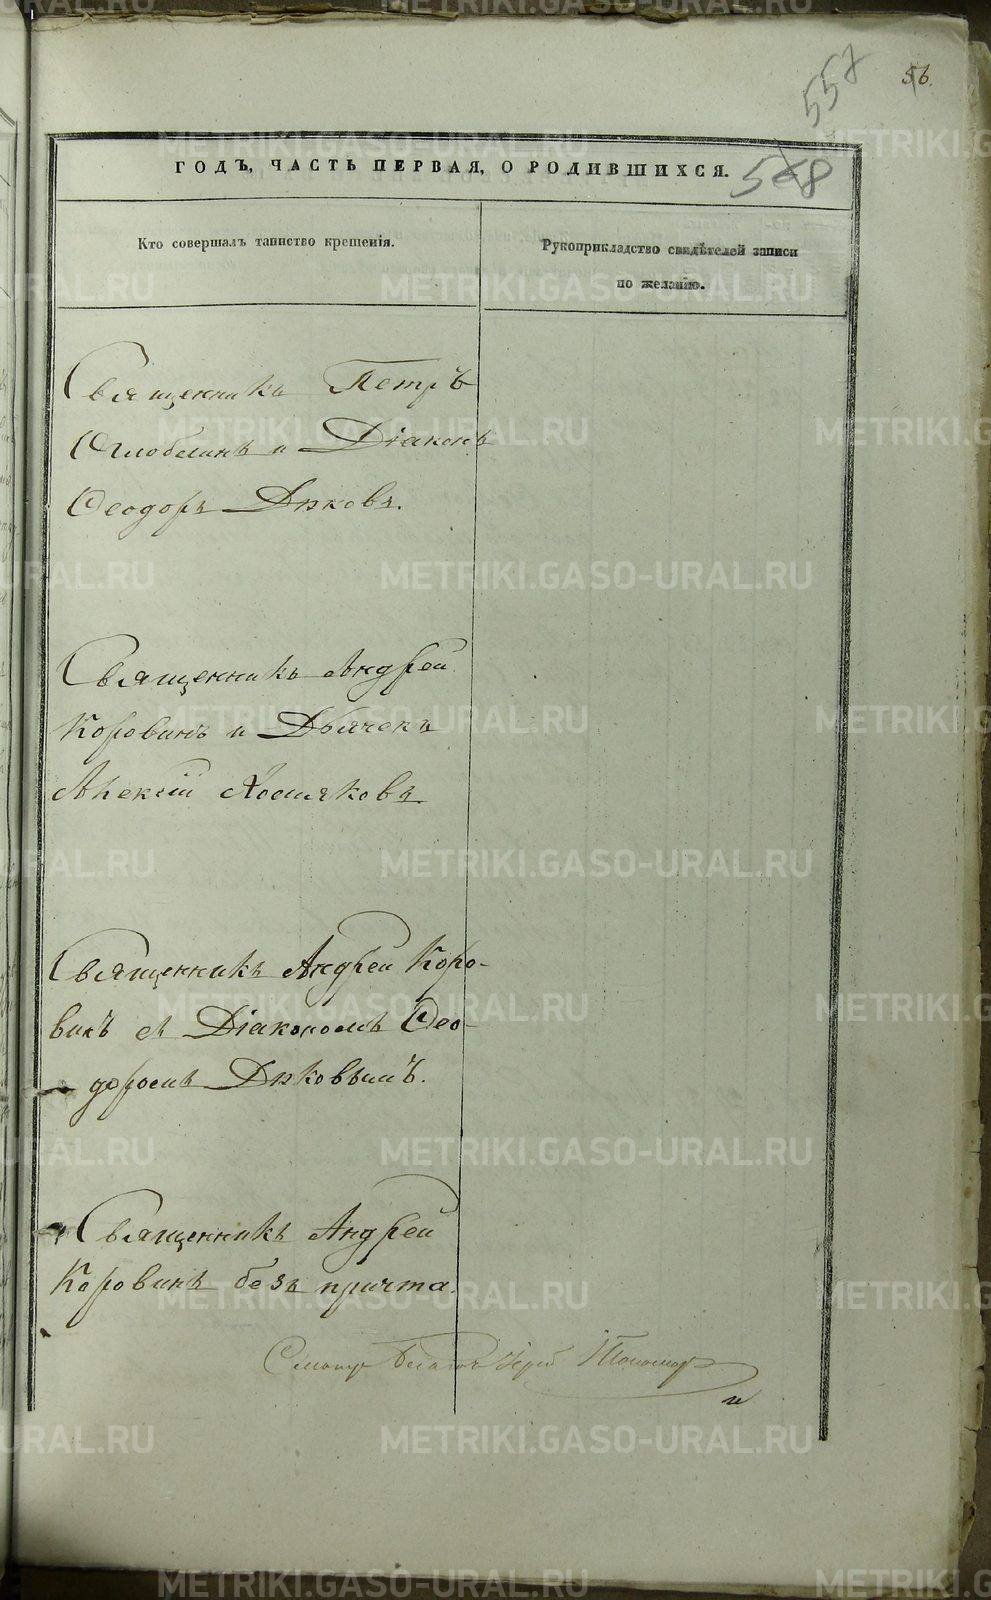 557
56.
ГОДЪ, ЧАСТЬ ПЕРВАЯ, О РОДИВШИХСЯ.
568
Кто совершалъ таинство крещенія.
Рукоприкладство свидѣтелей записи
по желанію.
Священникъ Петръ
Оглоблинъ и Діаконъ
Ѳеодоръ Дѣковъ.
Священникъ Андрей
Коровинъ и Дьячекъ
Алексій Хосмяковъ
Священникъ Андрей Коро-
винъ съ Діакономъ Ѳео-
доромъ Дѣковымъ.
Священникъ Андрей
Коровинъ безъ причта.
METRIKI.GASO-URAL.RU